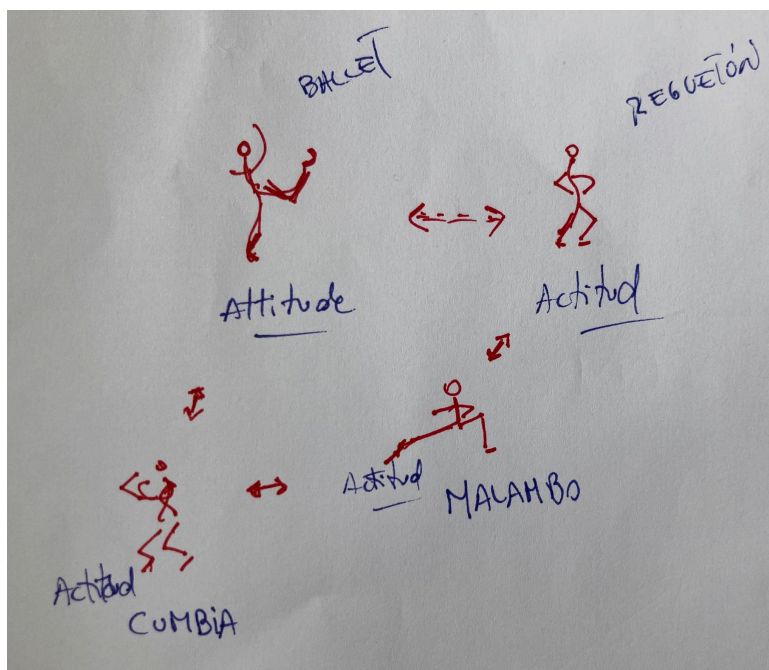 BALLET
REGUETÓN
Attitude
Actitud
Actitud
MALAMBO
Actitud
CUMBIA